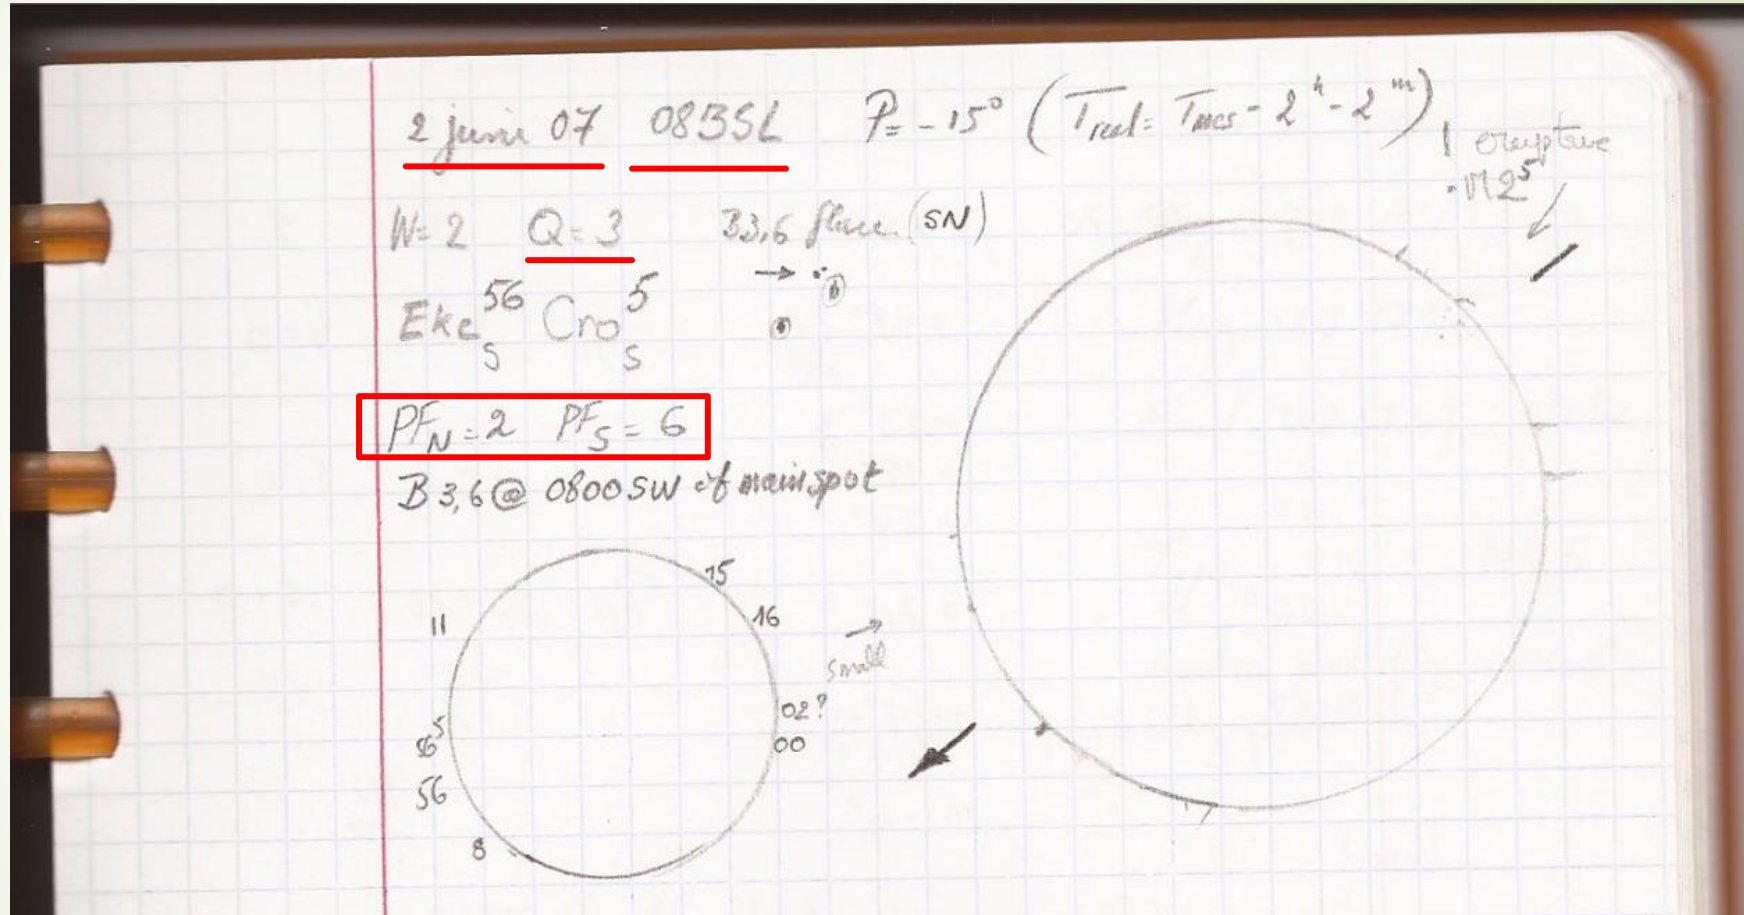 2 juni 07 08BSL P=-15° (Treel=Tmes-2ʰ-2ᵐ)
eruptive
W=2 Q=3 B3,6 flare (SN)
Eke⁵⁶S Cro⁵S
PFN=2 PFS=6
B3,6@ 0800 SW of main spot
15
11
16
small
02?
5
00
56
8